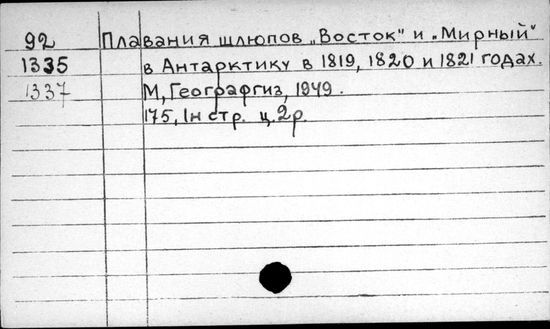 92 Плавания шлюпов „Восток" и „Мирный"
1335 в Антарктику в 1819, 1820 и 1821 годах.
1337 М, Географгиз, 1949.
175, 1н стр. ц. 2 р.